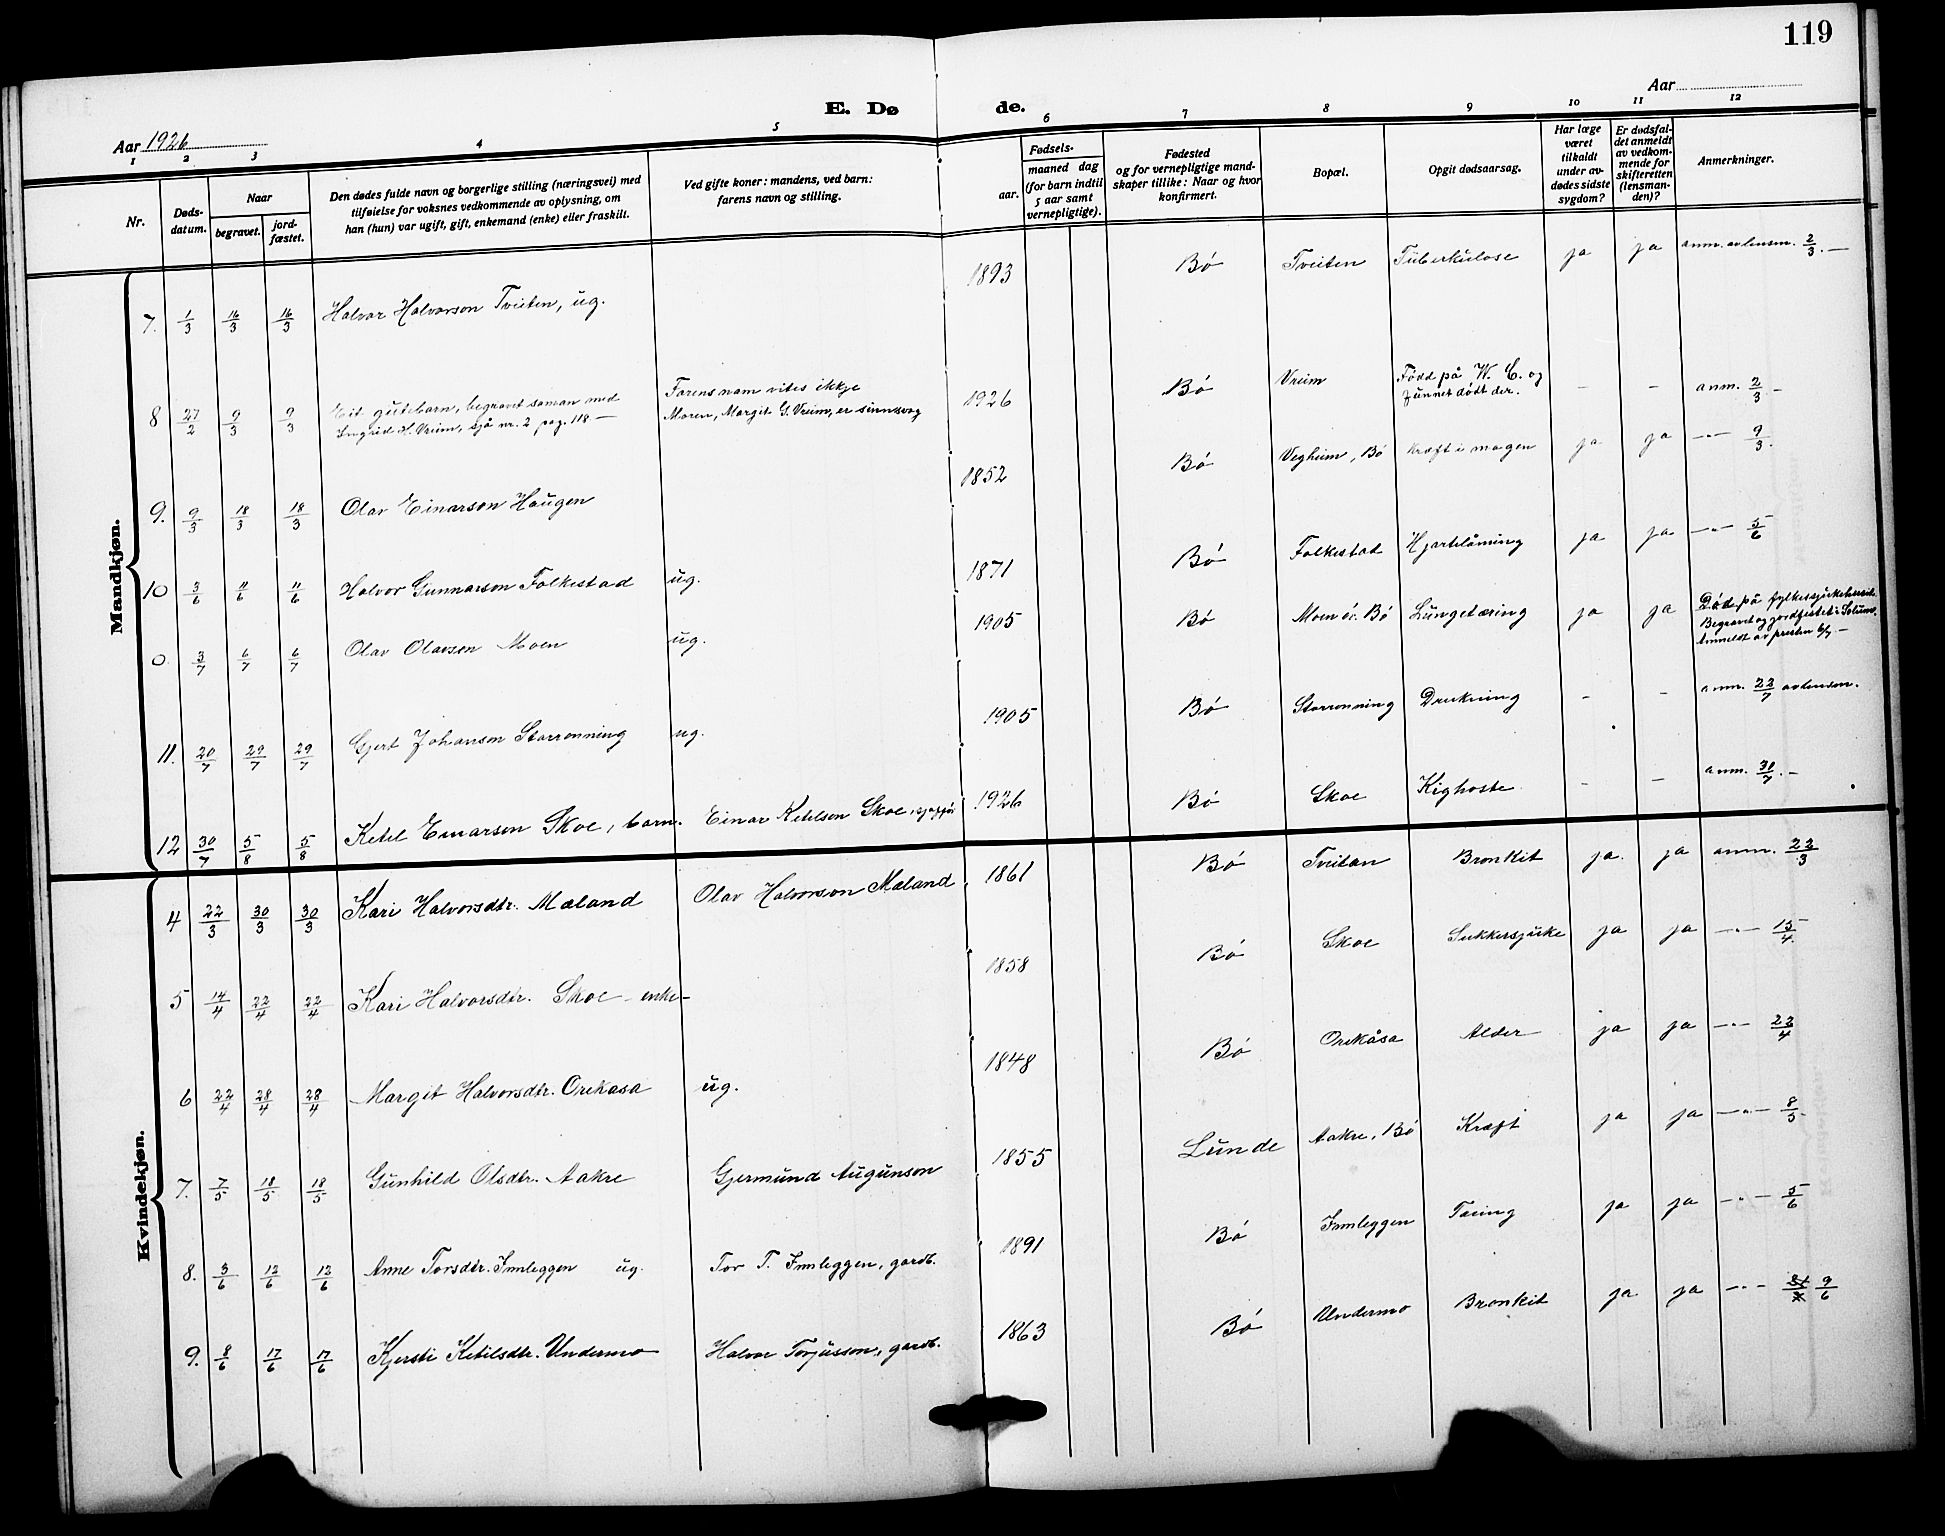 119
E. Dø de.
Aar 1926
Aar
1 2 3 4 5 6 7 8 9 10 11 12
Nr.
Døds-
datum.
Naar
begravet.
jord-
fæstet.
Den dødes fulde navn og borgerlige stilling (næringsvei) med
tilføielse for voksnes vedkommende av oplysning, om
han (hun) var ugift, gift, enkemand (enke) eller fraskilt.
Ved gifte koner: mandens, ved barn:
farens navn og stilling.
Fødsels-
aar.
maaned dag
(for barn indtil
5 aar samt
vernepligtige).
Fødested
og for vernepligtige mand-
skaper tillike: Naar og hvor
konfirmert.
Bopæl.
Opgit dødsaarsag.
Har læge
været
tilkaldt
under av-
dødes sidste
sygdom?
Er dødsfal-
det anmeldt
av vedkom-
mende for
skifteretten
(lensman-
den)?
Anmerkninger.
Mandkjøn.
7. 1/3 16/3 16/3 Halvor Halvorson Tveiten, ug. 1893 Bó Tveiten Tuberkulose ja ja anm. av lensm. 2/3. —
8 27/2 9/3 9/3 Eit gutebarn, begravet saman med
Ingrid H. Vreim, sjå nr. 2 pag. 118 —
Farens nam vites ikkje
Moren, Margit G. Vreim, er sinnssvag
1926 Bó Vreim Född på W. C. og
funnet dödt der. - - anm. 2/3 -
9. 9/3 18/3 18/3 Olav Einarson Haugen 1852 Bó Vegheim, Bó Kræft i magen ja ja —"— 9/3.
10 3/6 11/6 11/6 Halvor Gunnarson Folkestad ug. 1871 Bó Folkestad Hjartelåming ja ja —"— 5/6
0. 3/7 6/7 6/7 Olav Olavson Moen ug. 1905 Bó Moen Bó Lungetæring ja ja Död på fylkessjukehuset.
Begravet og jordfestet i Solum.
Anmeldt av presten 6/7 —
11. 20/7 29/7 29/7 Gjert Johanson Storrønning ug. 1905 Bó Storrønning Drukning - - anm. 22/7 av lensm.
12 30/7 5/8 5/8 Ketil Einarson Skoe, barn. Einar Ketilson Skoe, 1926 Bó Skoe Kighoste - - anm. 30/7. -
Kvindekjøn.
4 22/3 30/3 30/3 Kari Halvorsdtr. Mæland Olav Halvorson Mæland 1861 Bó Tveitan Bronkit ja. ja anm. 22/3
5 14/4 22/4 22/4 Kari Halvorsdtr. Skoe - enke - 1858 Bó Skoe Sukkersjuke ja ja —"— 15/4.
6 22/4 28/4 28/4 Margit Halvorsdtr. Orekåsa ug. 1848 Bó Orekåsa Alder ja ja —"— 22/4
7. 7/5 18/5 18/5 Gunhild Olsdtr. Aakre Gjermund Augunson 1855 Lunde Aakre, Bó Kræft ja ja —"— 8/5.
8. 3/6 12/6 12/6 Anne Torsdtr. Innleggen ug. Tor T. Innleggen, gardb. 1891 Bó Innleggen Tæring ja ja —"— 5/6
9. 8/6 17/6 17/6 Kjersti Ketilsdtr. Undermo Halvor Torjusson, gardb. 1863 Bó Undermo Bronkit ja ja —"— 9/6